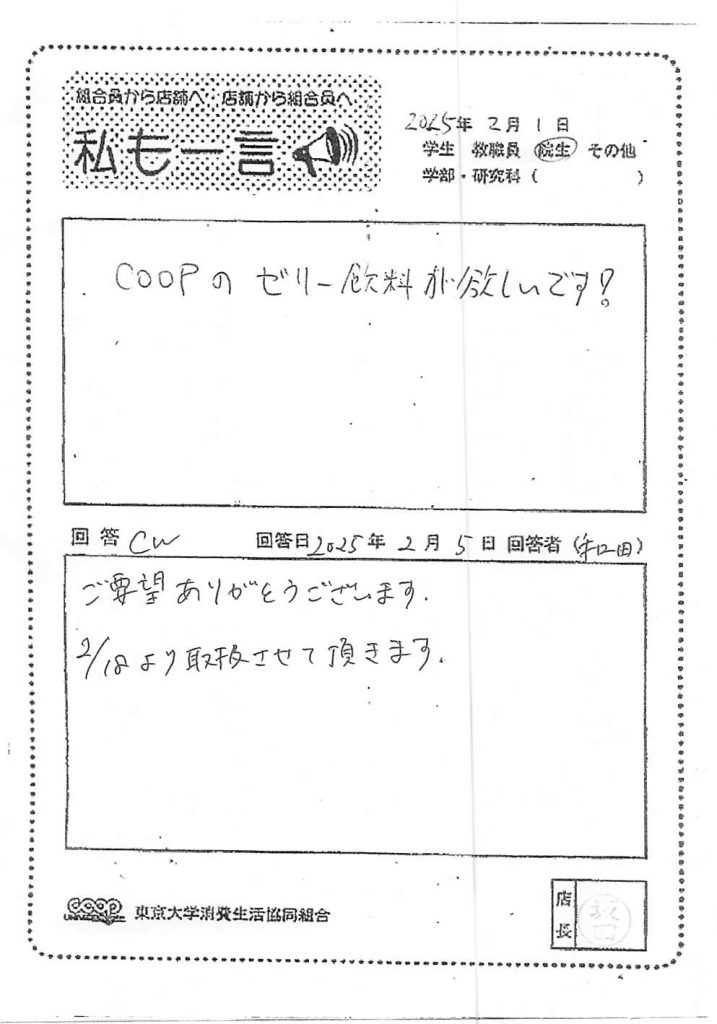 組合員から店舗へ 店舗から組合員へ
私も一言
2025年 2月 1日
学生 教職員 院生 その他
学部・研究科( )
COOPの ゼリー飲料が欲しいです!
回答 回答日2025年 2月 5日 回答者
ご要望ありがとうございます.
2/18より取扱させて頂きます.
coop 東京大学消費生活協同組合
店長
坂口